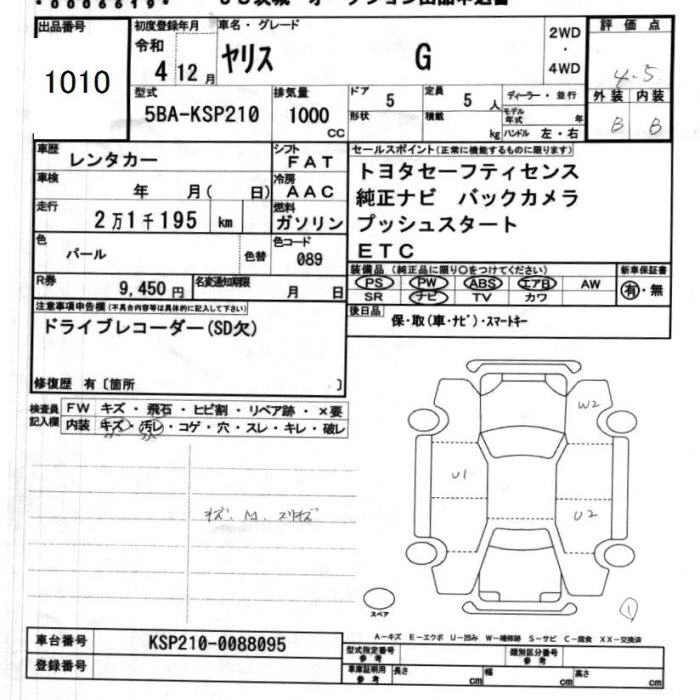 出品番号
1010
初度登録年月
令和
4年12月
車名・グレード
ヤリス G
2WD
・
4WD
評価点
4.5
外装 内装
B B
型式
5BA-KSP210
排気量
1000
CC
ドア 5
定員 5 人
形状
積載 kg
ディーラー・並行
モデル年式 年
ハンドル 左・右
車歴
レンタカー
シフト
FAT
車検
年 月( 日)
冷房
AAC
走行
2万1千195 km
燃料
ガソリン
色
パール
色替
色コード
089
R券
9,450円
名変通知期限
月 日
セールスポイント(正常に機能するものに限ります)
トヨタセーフティセンス
純正ナビ バックカメラ
プッシュスタート
ETC
装備品 (純正品に限り○をつけてください)
PS PW ABS エアB AW
SR ナビ TV カワ
新車保証書
有・無
後日品
保・取(車・ナビ)・スマートキー
注意事項申告欄(不具合内容等は具体的に記入して下さい)
ドライブレコーダー(SD欠)
修復歴 有〔箇所 〕
検査員
記入欄
FW キズ・飛石・ヒビ割・リペア跡・×要
内装 キズ・汚レ・コゲ・穴・スレ・キレ・破レ
W2
U1
U2
スペア
1
A-キズ E-エクボ U-凹み W-補修跡 S-サビ C-腐食 XX-交換済
車台番号
KSP210-0088095
登録番号
型式指定番号
参考
類別区分番号
参考
車庫証明用
参考
長さ cm
幅 cm
高さ cm